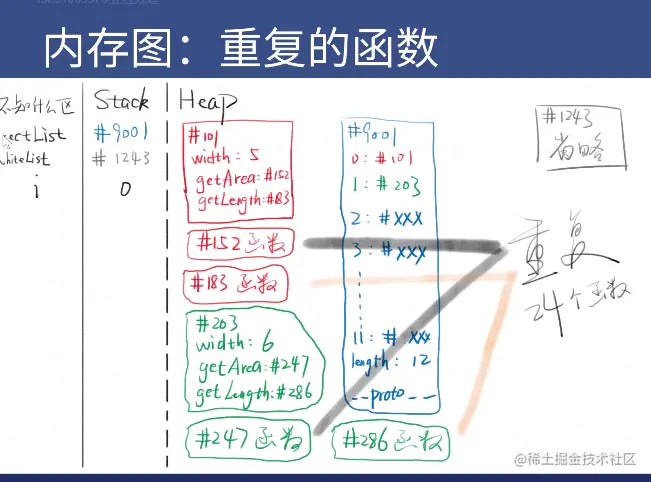 内存图：重复的函数
不知什么区 Stack Heap
ectList #9001
whiteList #1243
i 0
#101
width：5
getArea:#152
getLength:#183
#152 函数
#183 函数
#203
width：6
getArea:#247
getLength:#286
#247 函数
#9001
0：#101
1：#203
2：#XXX
3：#XXX
11：#XXX
length：12
--proto--
#286 函数
#1243
省略
重复
24个函数
@稀土掘金技术社区